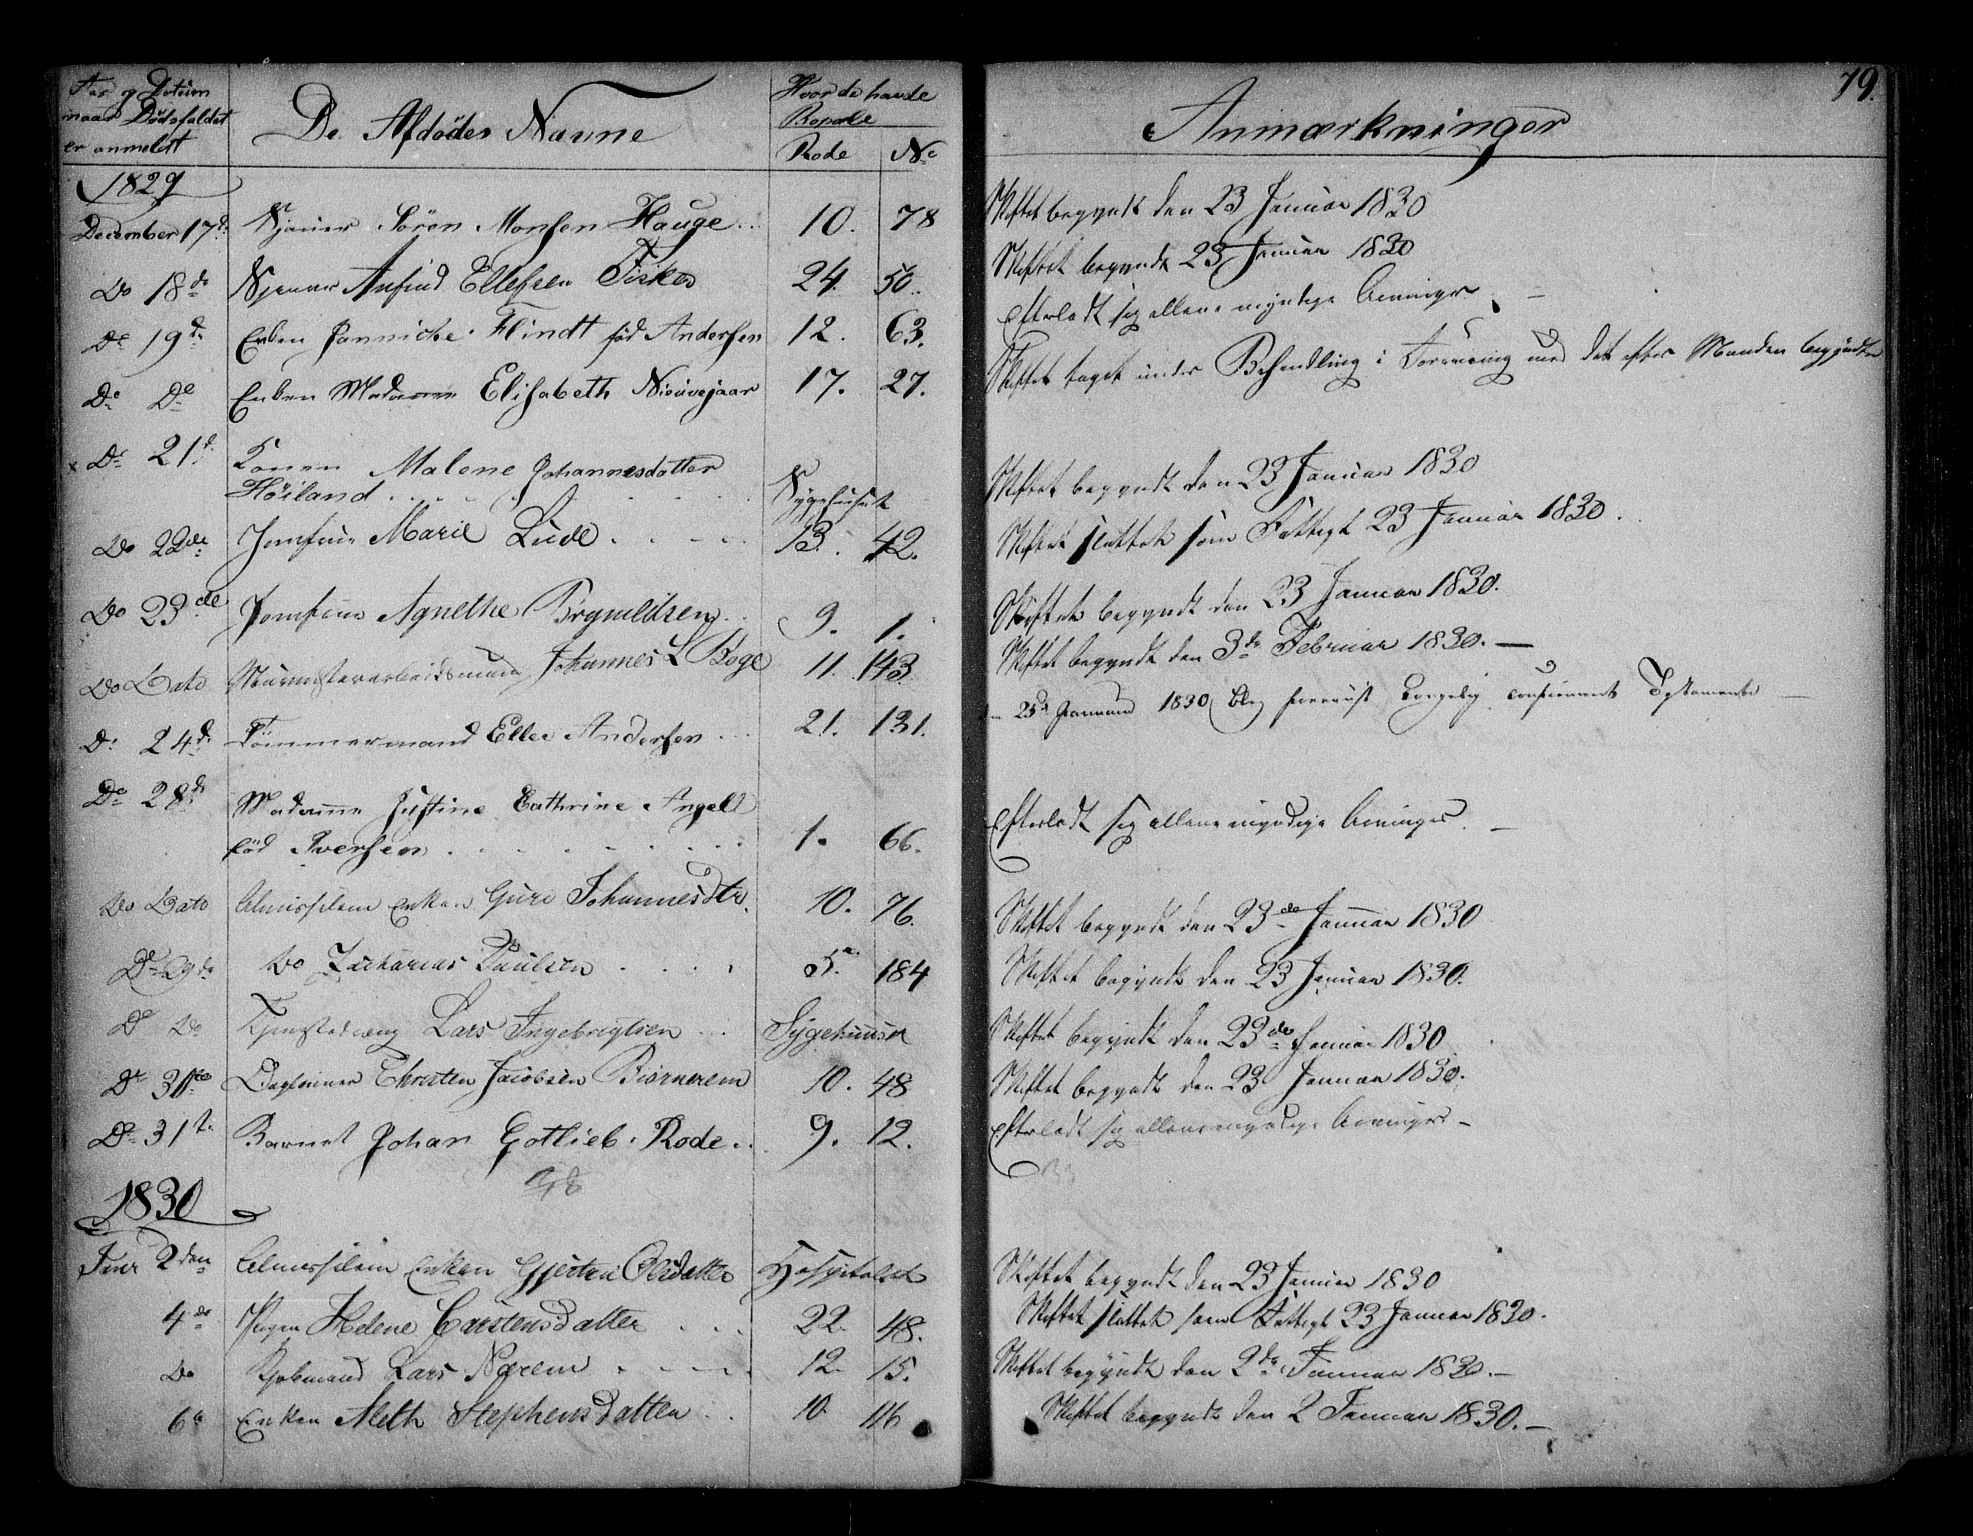 79.
Aar og Datum
naar Dødsfaldet
er anmeldt
De Afdødes Navne
Hvor de havde
Bopæle
Rode No
Anmærkninger
1829
December 17d Sjouer Sören Monsen Hauge 10. 78 Skiftet begyndt den 23 Januar 1830
Do 18de Sjouer Anfind Ellefsen Fisker 24. 50. Skiftet begyndt 23 Januar 1830
Do 19de Enken Jannicke Flindt fød Andersen 12. 63. Efterladt sig allene myndige Arvinger
De De Enken Madame Elisabeth Nieuwejaar 17. 27. Skiftet taget under Behandling i Forening med det efter Manden begyndte
De 21d Konen Malene Johannesdatter
Höiland Sygehuset Skiftet begyndt den 23 Januar 1830
Do 22de Jomfrue Marie Lude 13. 42. Skiftet sluttet som Fattigt 23 Januar 1830.
Do 23de Jomfrue Agnethe Brynildsen 9. 1. Skiftet begyndt den 23 Januar 1830.
Do Dato Muurmesterarbeidsmand Johannes L Boge 11. 143. Skiftet begyndt den 3de Februar 1830.
De 24de Tömmermand Eller Andersen 21. 131. 25d Januar 1830 blev foreviist confirmeret Testamente
De 28de Madame Justine Cathrine Angell
fød Iversen 1. 66. Efterladt sig allene myndige Arvinger.
Do Dato Almisselem Enken Guro Johannesdtr. 10. 76. Skiftet begyndt den 23de Januar 1830
De 29de Do Zacharias Paulsen 5. 184 Skiftet begyndt den 23 Januar 1830.
De Do Tjenestedreng Lars Ingebrigtsen Sygehuuset Skiftet begyndt den 23de Januar 1830
De 30te Dagleier Christen Jacobsen Biørnerem 10. 48 Skiftet begyndt den 23 Januar 1830.
De 31t Barnet Johan Gotlieb Rode 9. 12. Efterladt sig allene myndige Arvinger
1830
Janr 2den Almisselem Enken Gjertrud Olsdatter Hospitalet Skiftet begyndt den 23 Januar 1830
4de Pigen Helene Carstensdatter 22. 48. Skiftet sluttet som Fattigt 23 Januar 1830.
Do Kjøbmand Lars Nærem 12. 15. Skiftet begyndt den 2de Januar 1830.
6te Enken Aleth Stephensdatter 10. 116 Skiftet begyndt den 2 Januar 1830.